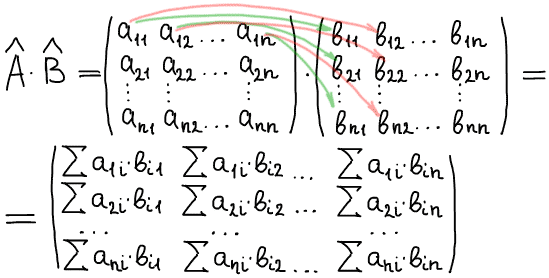 Â · B̂ = (a₁₁ a₁₂ ... a₁ₙ) · (b₁₁ b₁₂ ... b₁ₙ) =
a₂₁ a₂₂ ... a₂ₙ   b₂₁ b₂₂ ... b₂ₙ
⋮ ⋮ ⋮   ⋮ ⋮ ⋮
aₙ₁ aₙ₂ ... aₙₙ   bₙ₁ bₙ₂ ... bₙₙ
= (∑a₁ᵢ·bᵢ₁ ∑a₁ᵢ·bᵢ₂ ... ∑a₁ᵢ·bᵢₙ)
∑a₂ᵢ·bᵢ₁ ∑a₂ᵢ·bᵢ₂ ... ∑a₂ᵢ·bᵢₙ
... ... ...
∑aₙᵢ·bᵢ₁ ∑aₙᵢ·bᵢ₂ ... ∑aₙᵢ·bᵢₙ